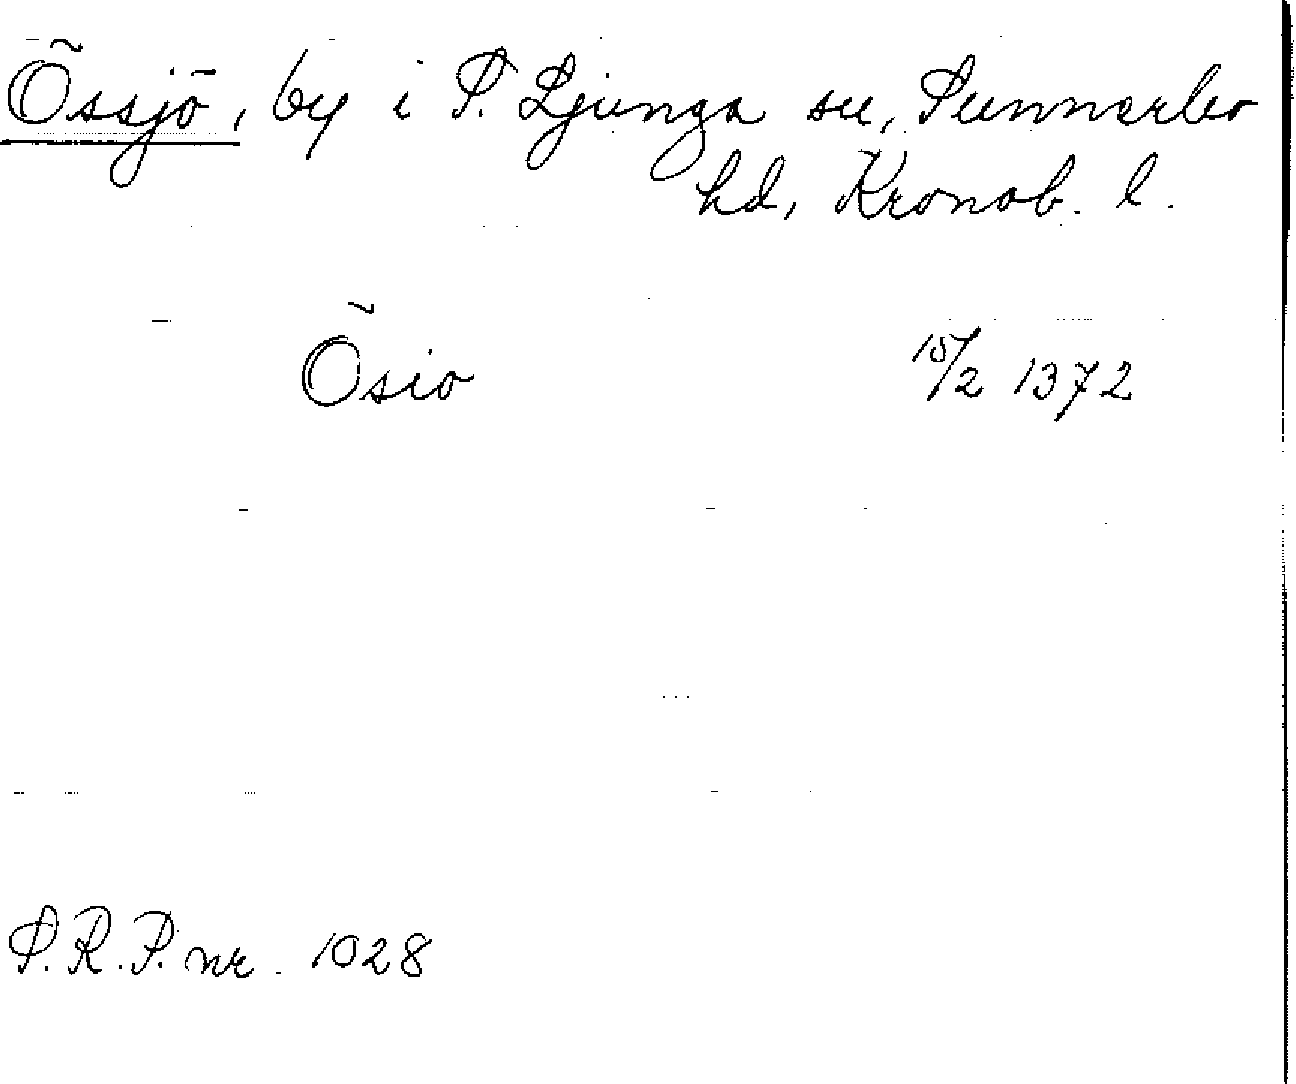 Össjö, by i S. Ljunga sn, Sunnerbo
hd, Kronob. l.
Ösio 15/2 1372
S.R.P. nr. 1028